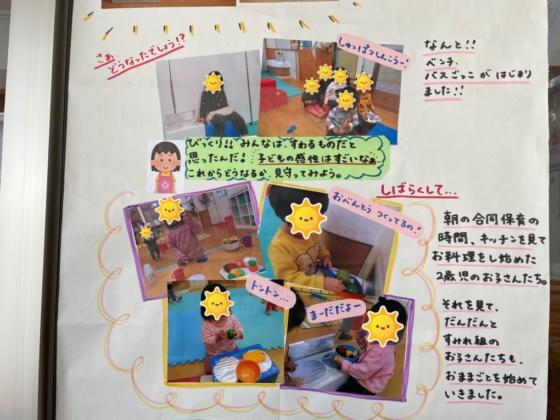 さぁ、
どうなったでしょう!?
しゅっぱつしんこうー!
なんと!!
ベンチ、
バスごっこ がはじまり
ました!!
びっくり!! みんなは、すわるものだと
思ったんだ! 子どもの感性はすごいなぁ…
これからどうなるか、見守ってみよう。
しばらくして…
おべんとう つくってるの!
朝の合同保育の
時間、キッチンを見て
お料理をし始めた
2歳児のお子さんたち。
トントン…
まーだだよー
それを見て、
だんだんと
すみれ組の
お子さんたちも、
おままごとを始めて
いきました。